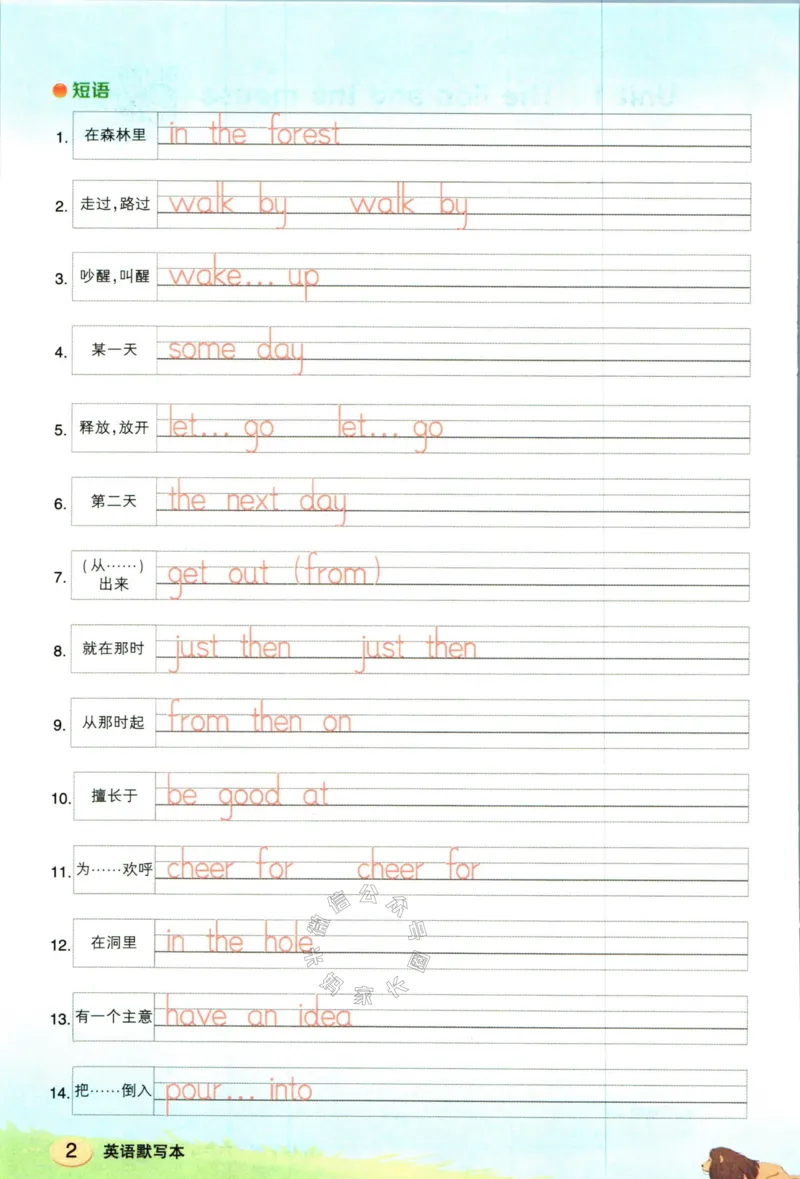 短语
1. 在森林里 in the forest
2. 走过,路过 walk by walk by
3. 吵醒,叫醒 wake... up
4. 某一天 some day
5. 释放,放开 let... go let... go
6. 第二天 the next day
7. (从……)出来 get out (from)
8. 就在那时 just then just then
9. 从那时起 from then on
10. 擅长于 be good at
11. 为……欢呼 cheer for cheer for
12. 在洞里 in the hole
13. 有一个主意 have an idea
14. 把……倒入 pour... into
2 英语默写本